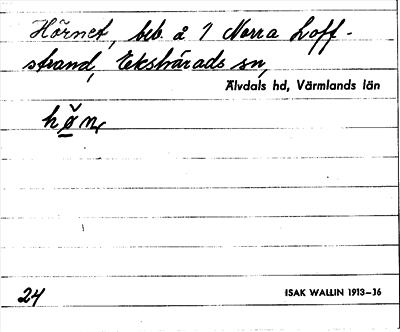 Hörnet, beb. å 1 Norra Loff-
strand, Ekshärads sn,
Älvdals hd, Värmlands län
24
ISAK WALLIN 1913–36